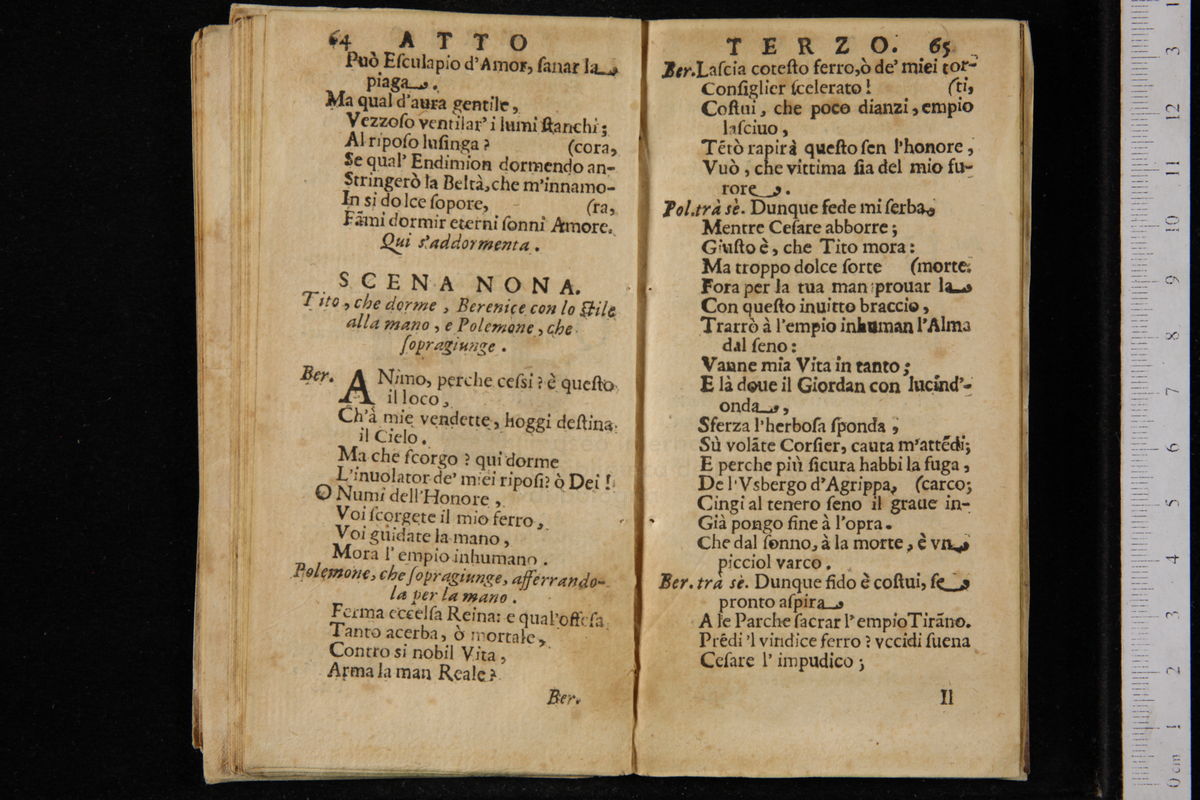 64 ATTO
Può Eſculapio d'Amor, ſanar la
piaga.
Ma qual d'aura gentile,
Vezzoſo ventilar' i lumi ſtanchi;
Al ripoſo luſinga? (cora,
Se qual' Endimion dormendo an-
Stringerò la Beltà, che m'innamo-
In si dolce ſopore, (ra,
Fãmi dormir eterni ſonni Amore.
Qui s'addormenta.
SCENA NONA.
Tito, che dorme, Berenice con lo Stile
alla mano, e Polemone, che
ſopragiunge.
Ber. ANimo, perche ceſsi? è queſto
il loco,
Ch'à mie vendette, hoggi deſtina
il Cielo.
Ma che ſcorgo? qui dorme
L'inuolator de' miei ripoſi? ò Dei!
O Numi dell'Honore,
Voi ſcorgete il mio ferro,
Voi guidate la mano,
Mora l'empio inhumano.
Polemone, che ſopragiunge, afferrando-
la per la mano.
Ferma eccelſa Reina: e qual'offeſa
Tanto acerba, ò mortale,
Contro si nobil Vita,
Arma la man Reale?
Ber.
TERZO. 65
Ber. Laſcia coteſto ferro, ò de' miei tor-
Conſiglier ſcelerato! (ti,
Coſtui, che poco dianzi, empio
laſciuo,
Tẽtò rapirà queſto ſen l'honore,
Vuò, che vittima ſia del mio fu-
rore.
Pol. trà sè. Dunque fede mi ſerba
Mentre Ceſare abborre;
Giuſto è, che Tito mora:
Ma troppo dolce ſorte (morte.
Fora per la tua man prouar la
Con queſto inuitto braccio,
Trarrò à l'empio inhuman l'Alma
dal ſeno:
Vanne mia Vita in tanto;
E là doue il Giordan con lucind'-
onda,
Sferza l'herboſa ſponda,
Sù volãte Corſier, cauta m'attẽdi;
E perche più ſicura habbi la fuga,
De l'Vsbergo d'Agrippa, (carco;
Cingi al tenero ſeno il graue in-
Già pongo fine à l'opra.
Che dal ſonno, à la morte, è vn
picciol varco.
Ber. trà sè. Dunque fido è coſtui, ſe
pronto aſpira
A le Parche ſacrar l'empio Tirãno.
Prẽdi 'l vindice ferro? vccidi ſuena
Ceſare l'impudico;
Il